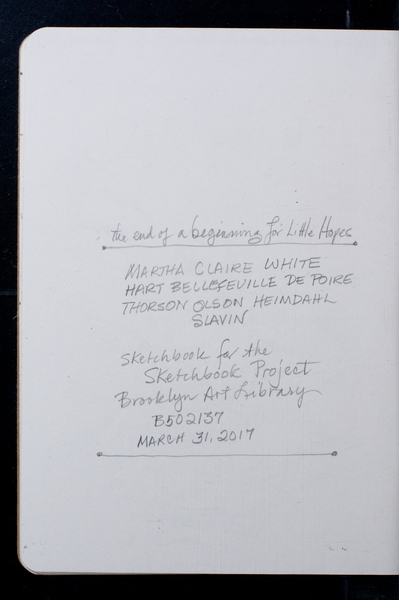 the end of a beginning for Little Hopes
MARTHA CLAIRE WHITE
HART BELLEFEUILLE DE POIRE
THORSON OLSON HEIMDAHL
SLAVIN
Sketchbook for the
Sketchbook Project
Brooklyn Art Library
B502137
MARCH 31, 2017